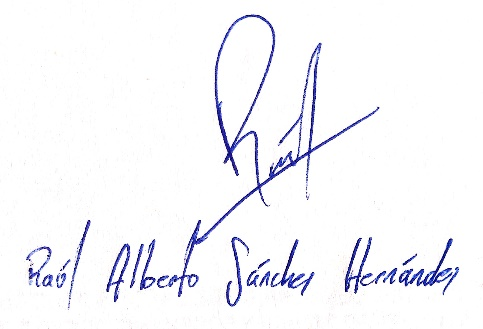 Raúl
Raúl Alberto Sánchez Hernández